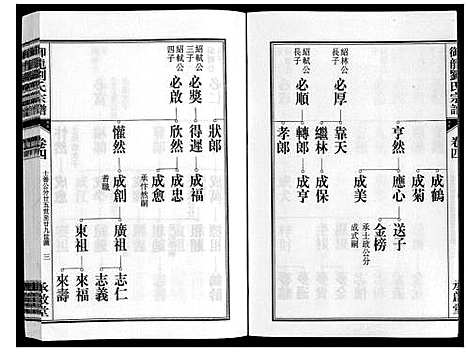 御龍劉氏宗譜
卷四
承啟堂
紹林公長子
必厚
靠天
亨然
成鶴
成菊
應心
送子
金榜
承士政公分成式嗣
成美
繼林
成保
紹軾公長子
必順
轉郎
成亨
孝郎
紹軾公三子
必奬
狀郎
得遲
成福
紹軾公四子
必啟
欣然
成忠
成愈
承忤然嗣
懽然
成創
善職
廣祖
志仁
志義
東祖
來福
來壽
御龍劉氏宗譜
卷四
十善公分廿五世至廿九世圖
三
承啟堂